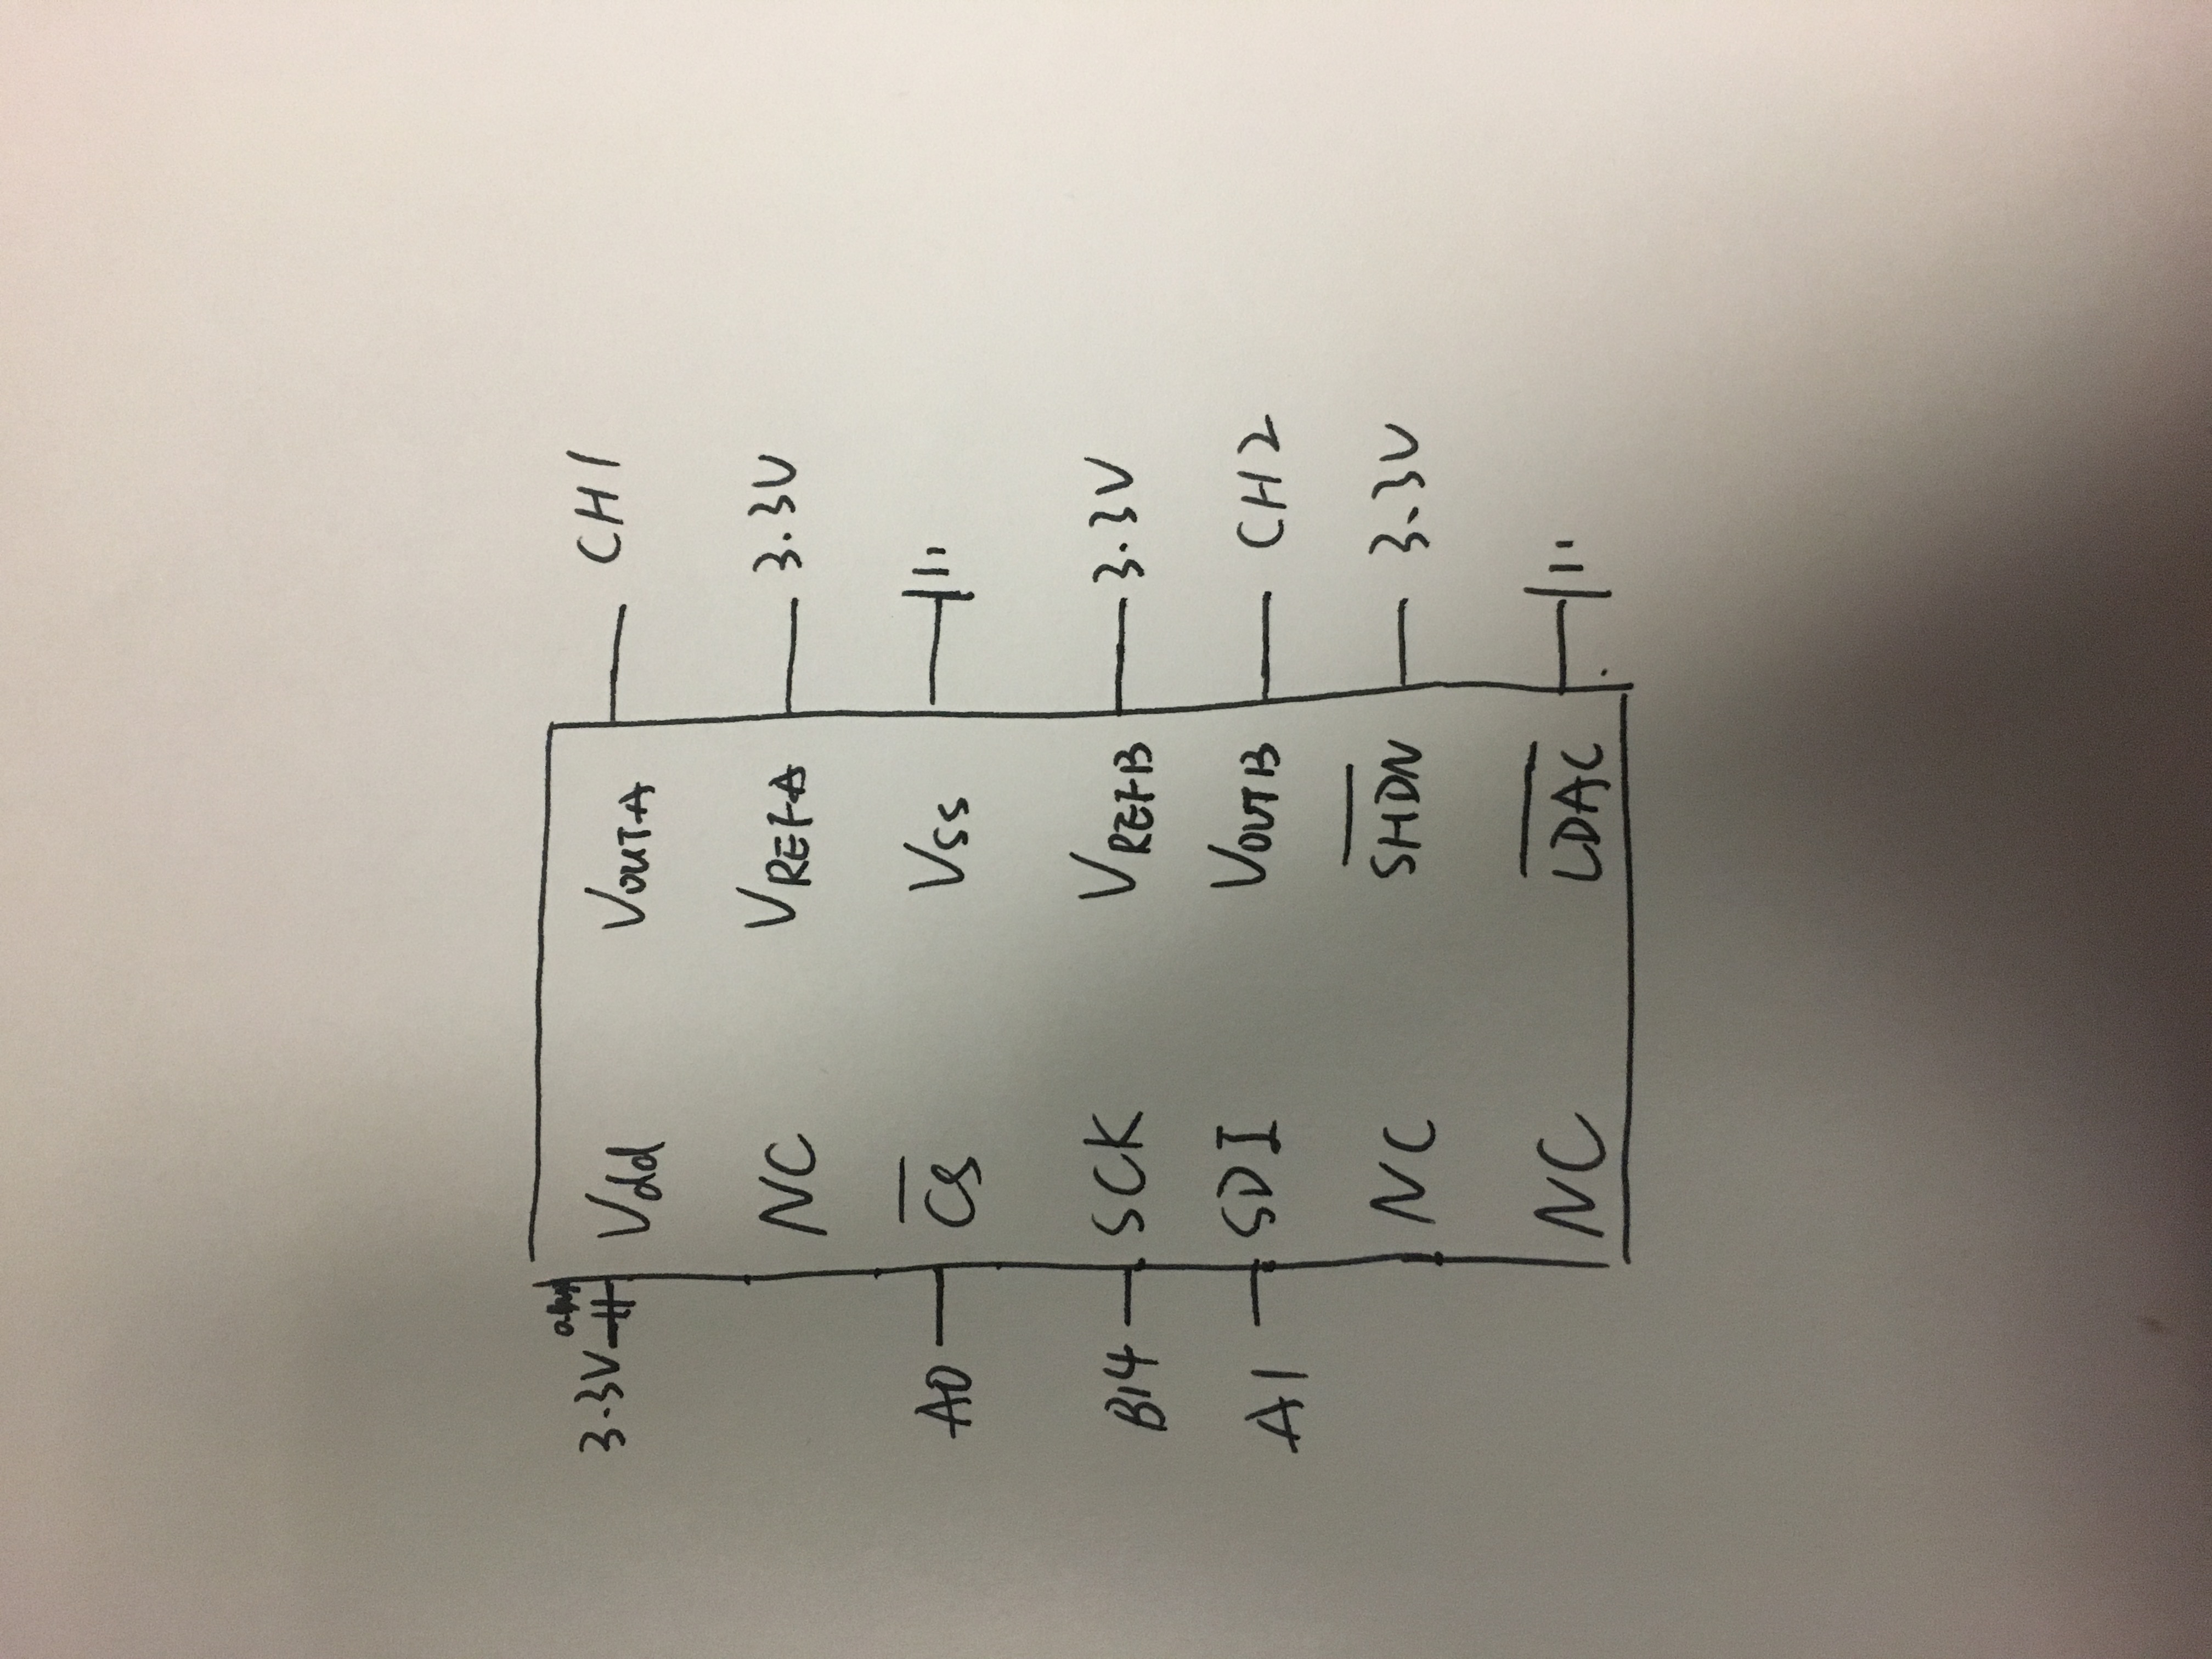 3.3V Vdd VOUTA CH1
NC VREFA 3.3V
A0 CS VSS
B14 SCK VREFB 3.3V
A1 SDI VOUTB CH2
NC SHDN 3.3V
NC LDAC